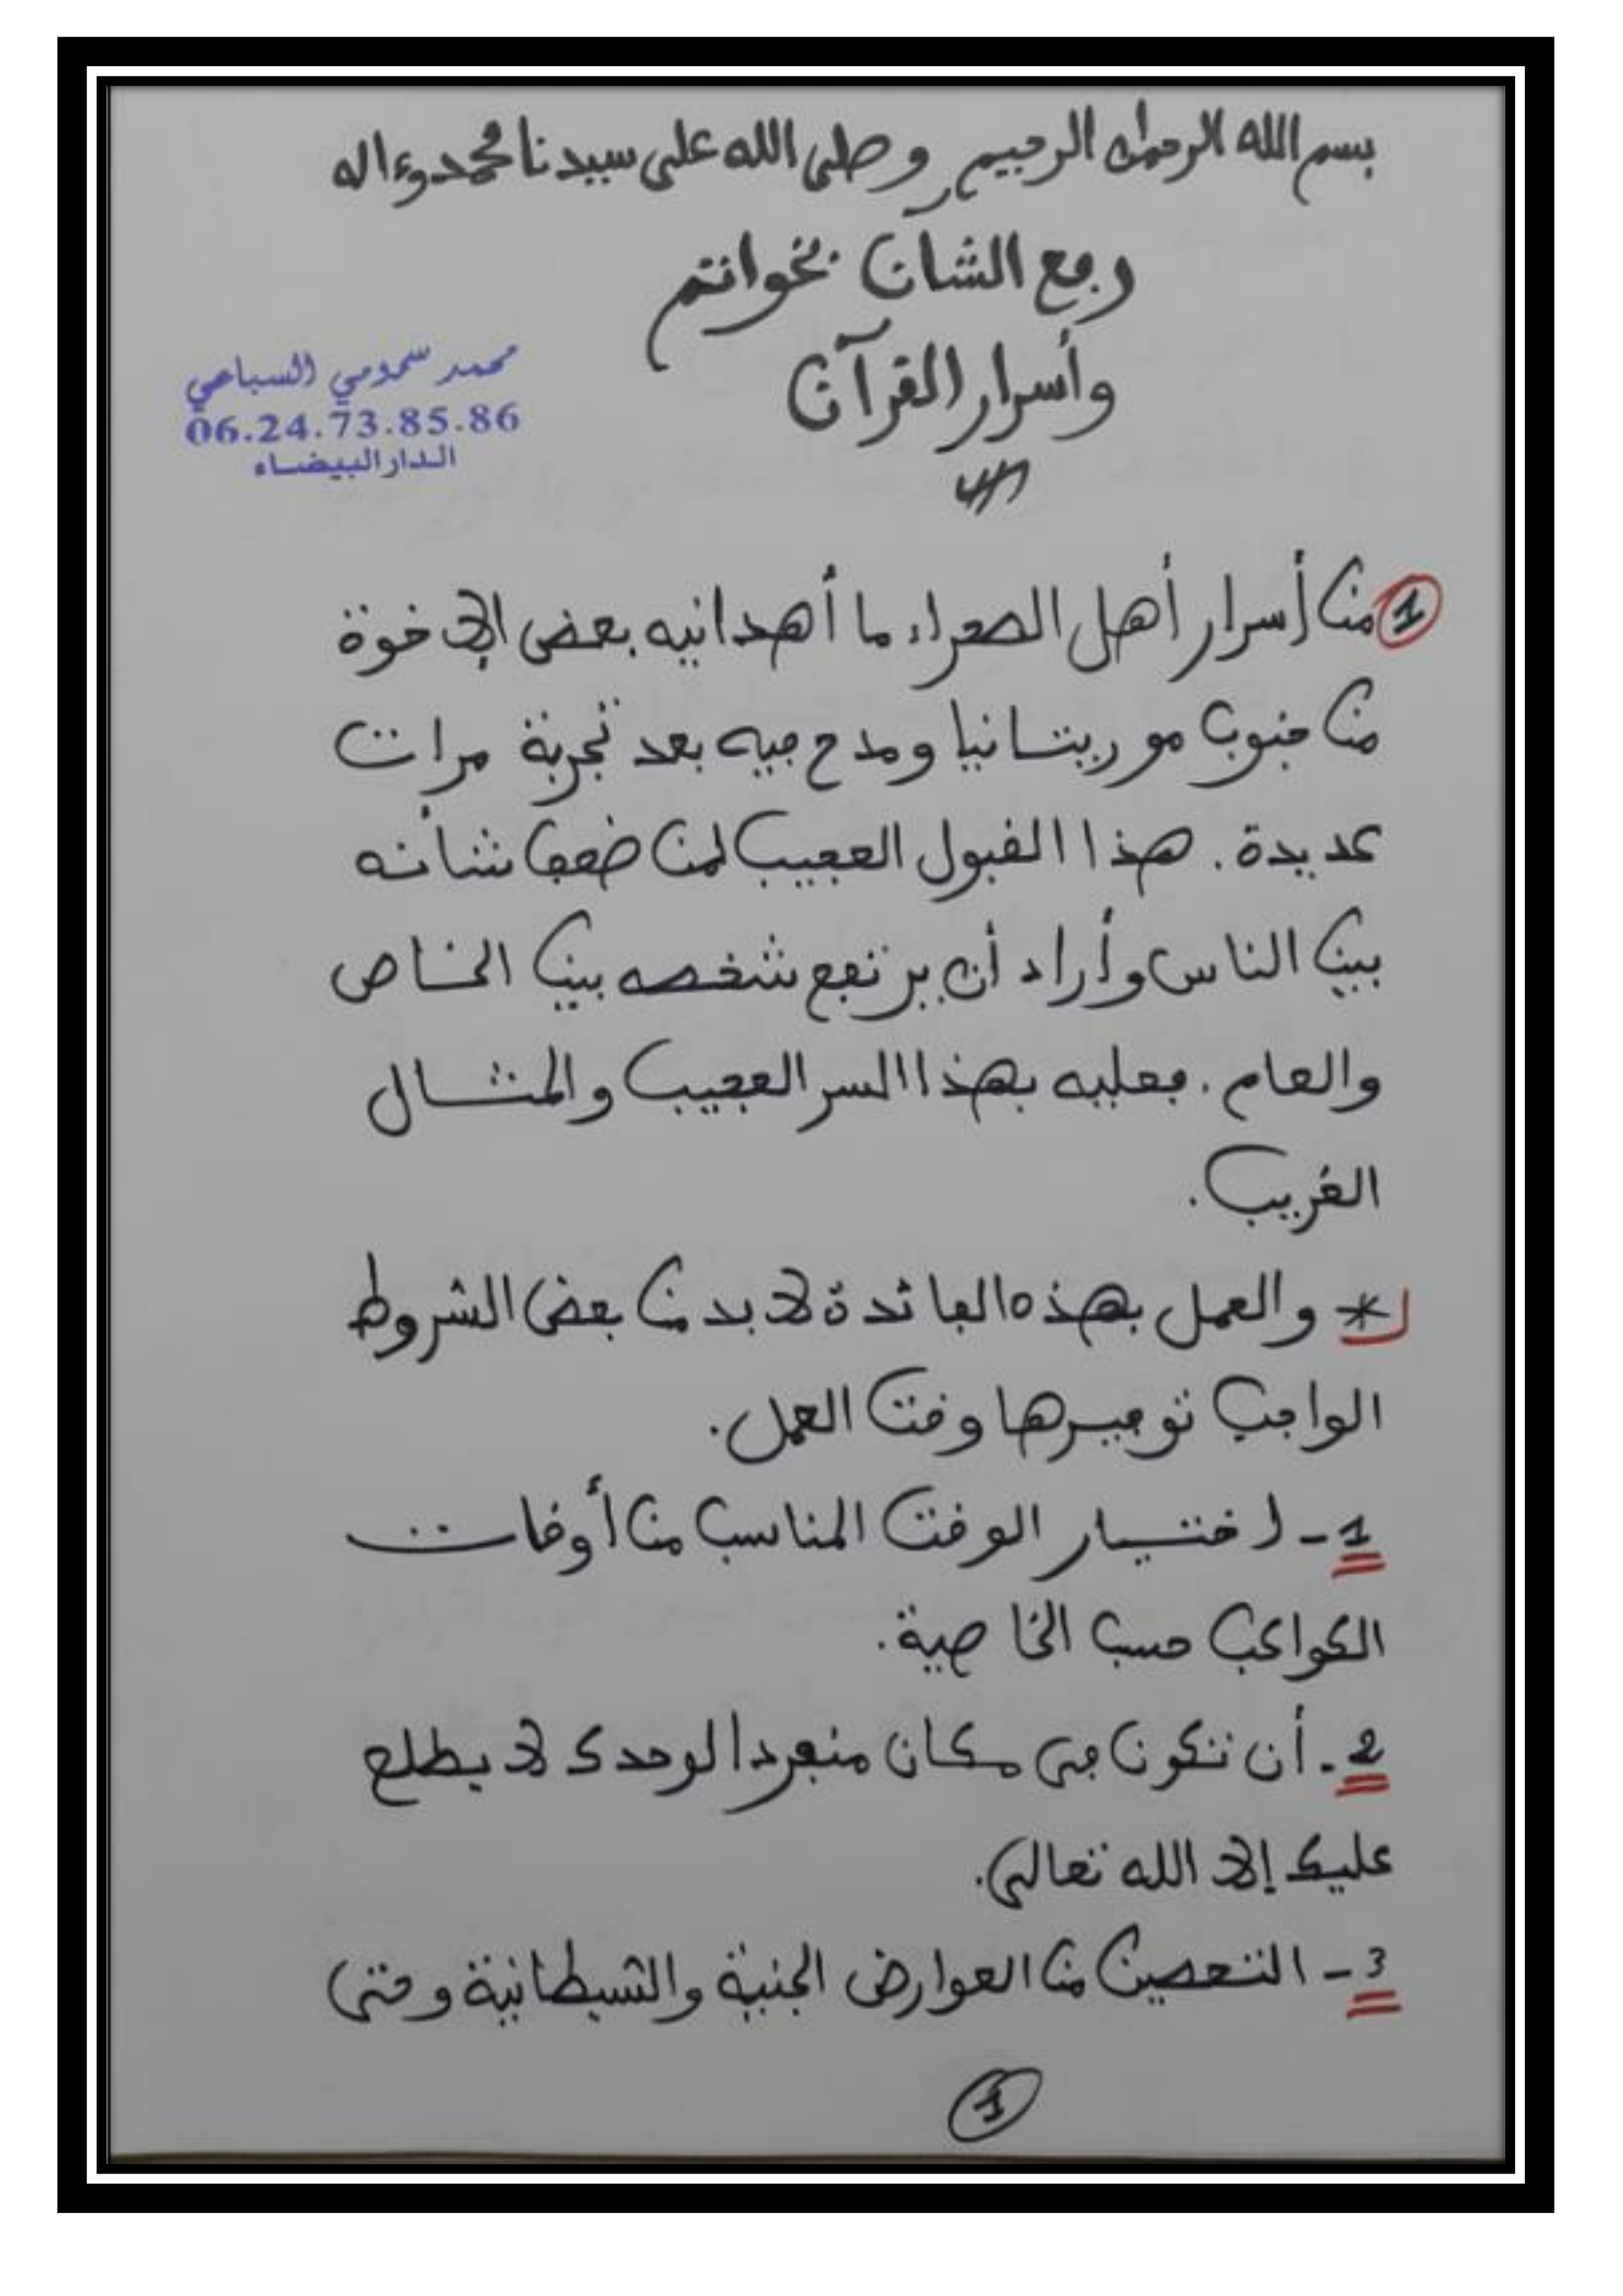 بسم الله الرحمان الرحيم وصلى الله على سيدنا محمد وءاله
رفع الشان بخواتم
وأسرار القرآن
محمد سمومي السباعي
06.24.73.85.86
الدار البيضاء
1 من أسرار أهل الصحراء ما أهدانيه بعض الإخوة
من جنوب موريتانيا ومدح فيه بعد تجربة مرات
عديدة. هذا القبول العجيب لمن ضعف شأنه
بين الناس وأراد أن يرتفع شخصه بين الخاص
والعام. فعليه بهذا السر العجيب والمثال
الغريب.
* والعمل بهذه الفائدة لا بد من بعض الشروط
الواجب توفيرها وقت العمل.
1- اختيار الوقت المناسب من أوقات
الكواكب حسب الخاصية.
2- أن تكون في مكان منفردا لوحدك لا يطلع
عليك إلا الله تعالى.
3- التحصين من العوارض الجنية والشيطانية وحتى
1